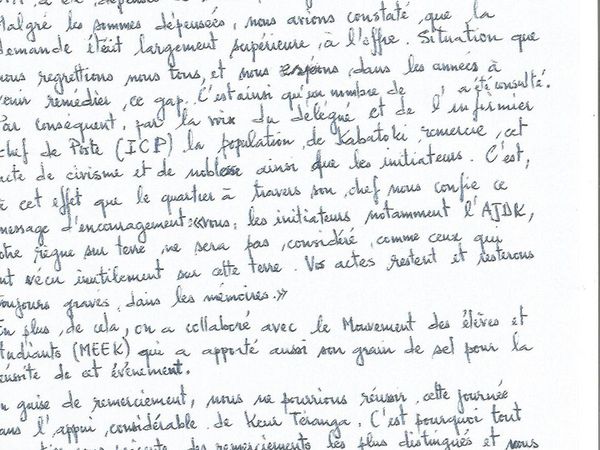 Malgré les sommes dépensées, nous avions constaté, que, la
demande étéit largement supérieure, à l'offre. Situation que
nous regrettions nous tous, et nous espons, dans les années à
venir remédier, ce gap. C'est ainsi qu'un nombre de , a été consulté.
Par conséquent, par la voix du délégué et de l'infirmier
chef de Poste (ICP) la population, de Kabatoki remercie, cet
acte de civisme et de noblesse ainsi que les initiateurs. C'est,
à cet effet que le quartier à travers son chef nous confie ce
message d'encouragement: «Vous, les initiateurs notamment l'AJDK,
votre règne sur terre, ne sera pas, considéré, comme ceux qui
ont vécu inutilement sur cette terre. Vos actes restent et resterons
toujours gravés, dans les mémoires.»
En plus, de cela, on a collaboré avec le Mouvement des élèves et
étudiants (MEEK) qui a apporté aussi son grain de sel pour la
réussite de cet événement.
En guise de remerciement, nous ne pourrions réussir, cette journée
sans l'appui, considérable, de Keur Téranga. C'est pourquoi tout
des remerciements les plus distingués et nous